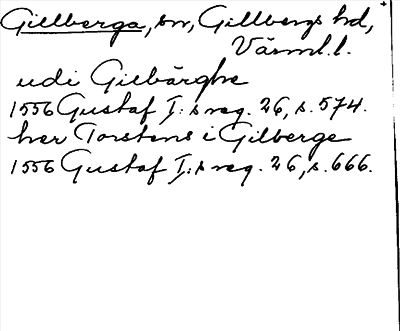 Gillberga, sn, Gillbergs hd,
Värml. l.
udi Gilbärghe
1556 Gustaf I:s reg. 26, s. 574.
her Torstens i Gilberge
1556 Gustaf I:s reg. 26, s. 666.